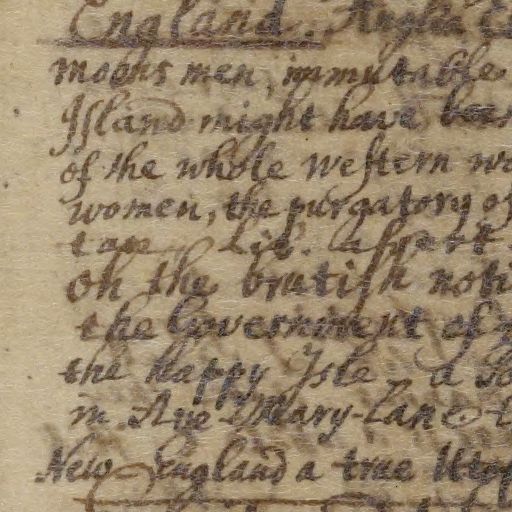 England.
men, immutable
Island might have been
of the whole western
women, the purgatory of
lib.
on the brutish noti
the Government of
the Happy Isle, a
in Ave Mary-Lane
New England a true Utop